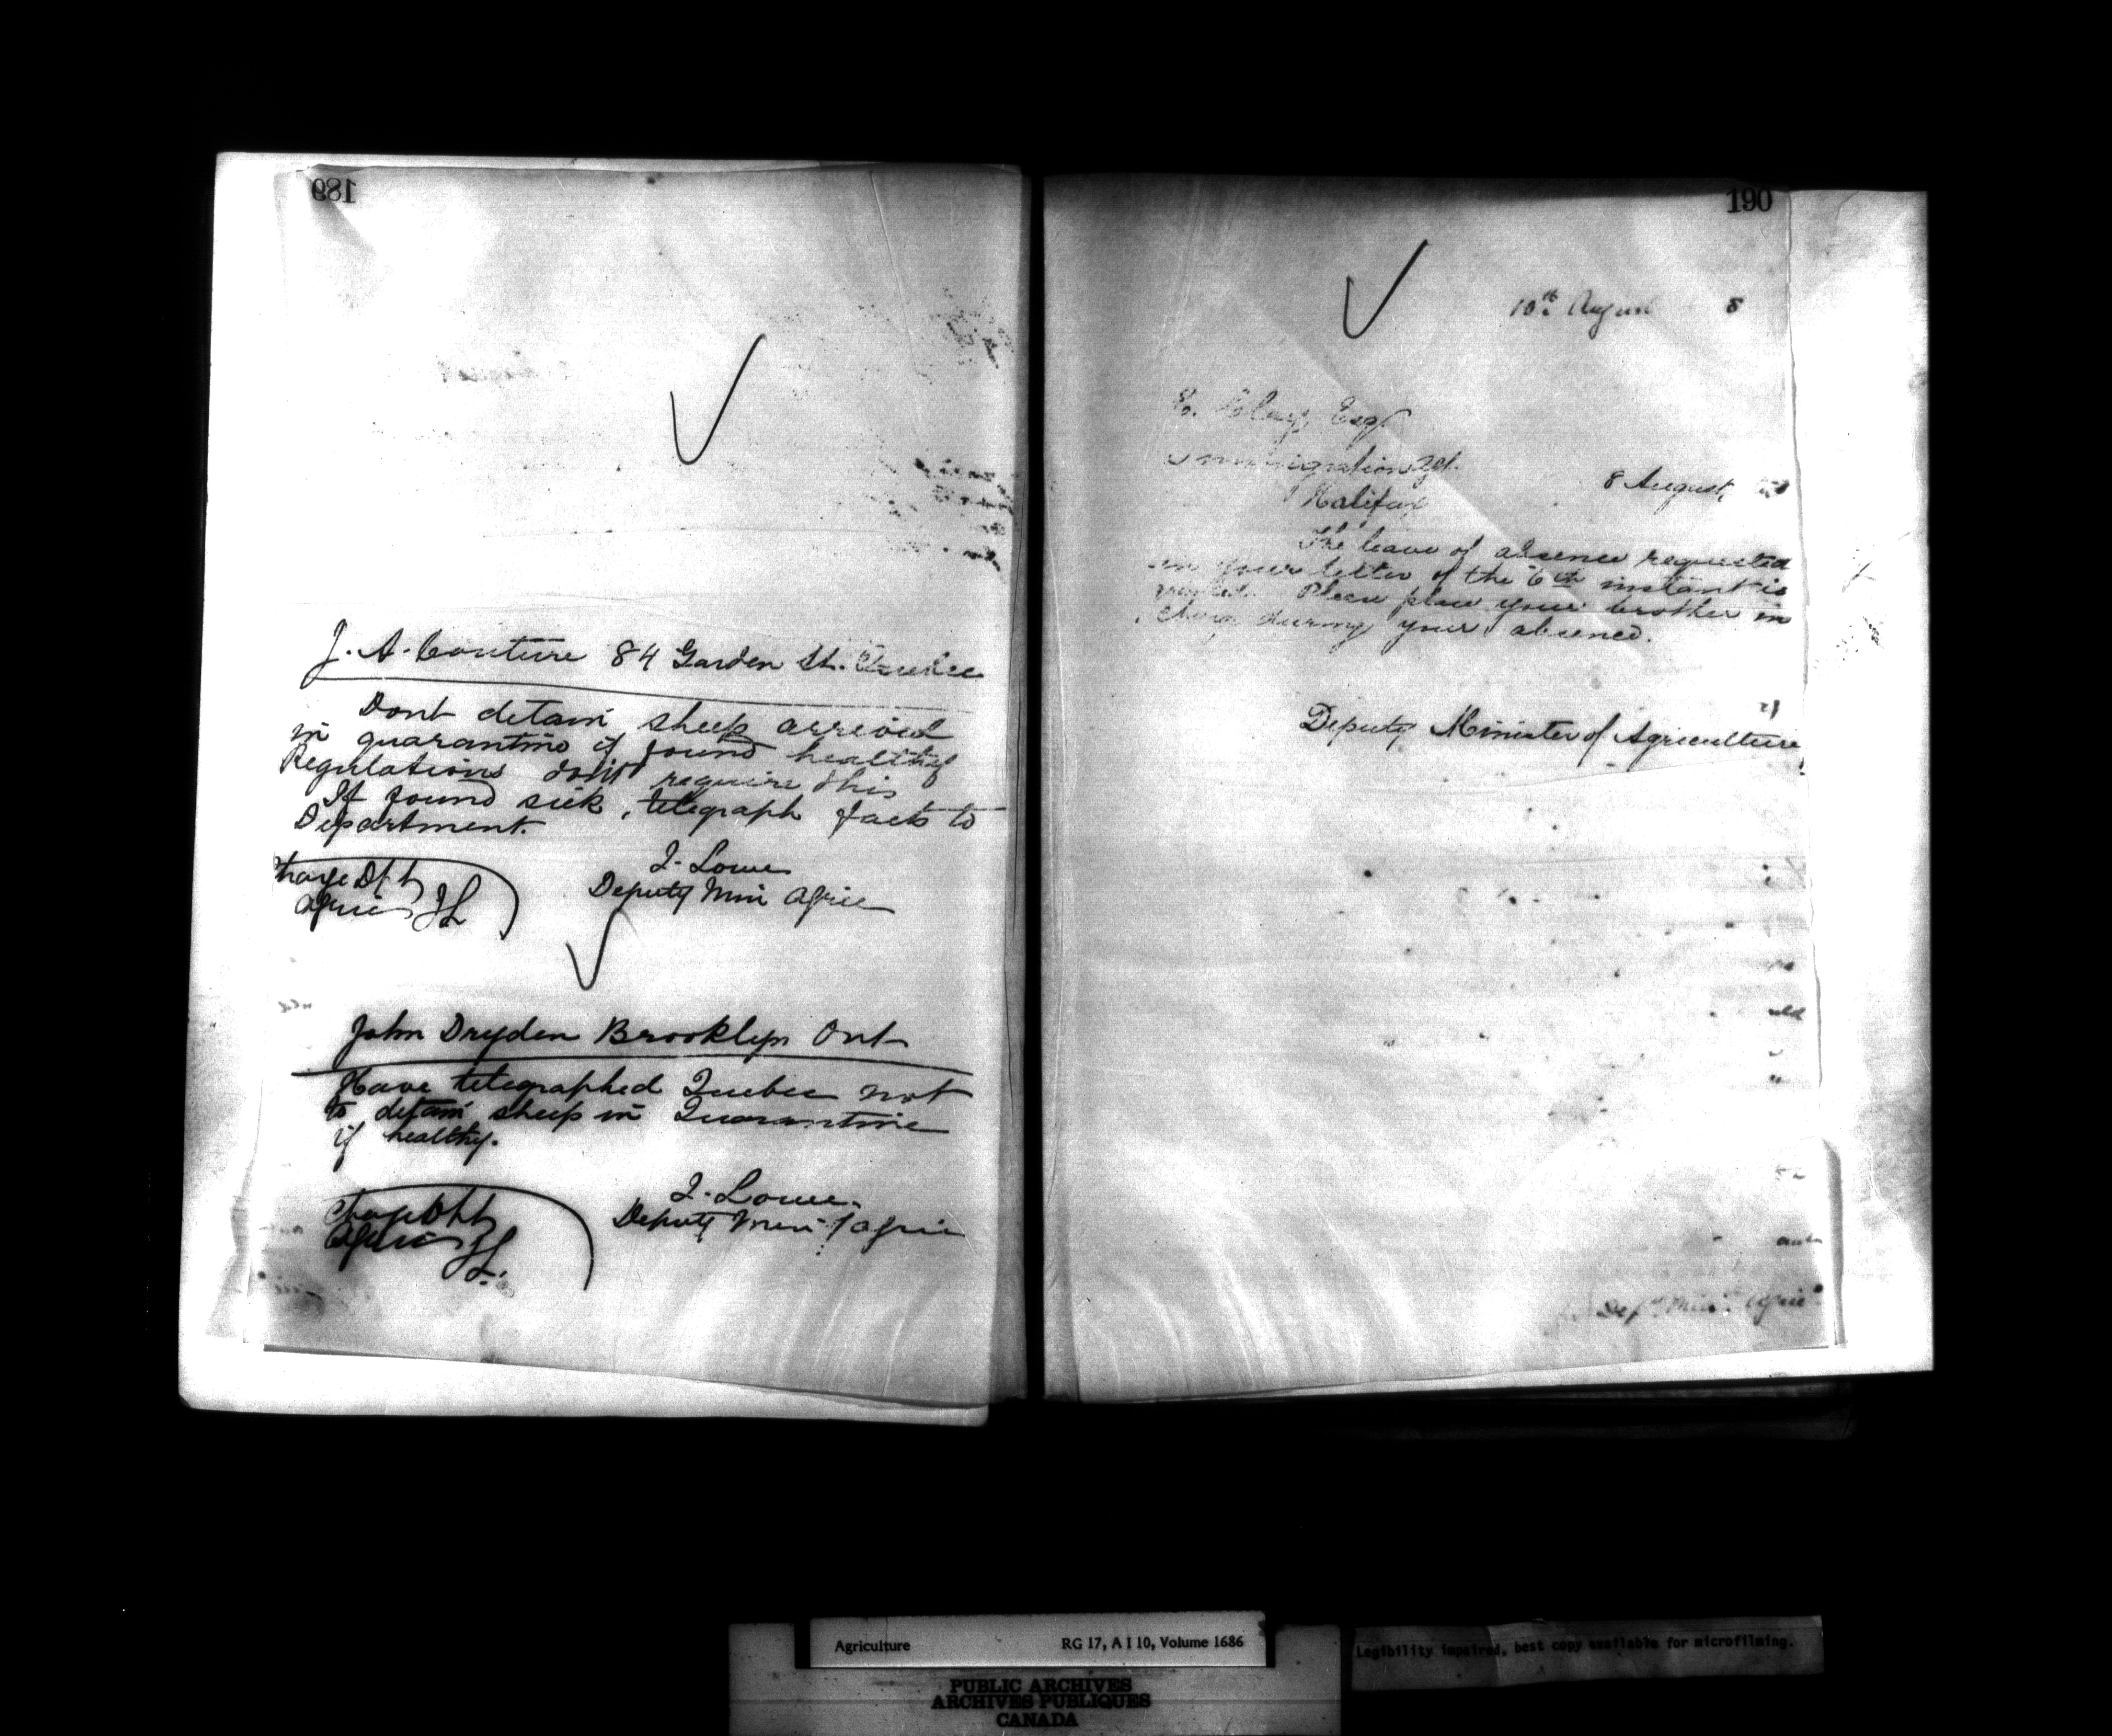 189
J. A. Couture 84 Garden St. Quebec
Dont detain sheep arrived
in quarantine if found healthy
Regulations dont require this
If found sick, telegraph facts to
Department.
J. Lowe
Deputy Min Agric
Charge Dpt
Agric JL
John Dryden Brooklyn Ont
Have telegraphed Quebec not
to detain sheep in Quarantine
if healthy.
J. Lowe.
Deputy Min of Agric
Charge Dpt
Agric JL
190
10th August 8
E. Clay, Esq
Immigration Agt.
Halifax
8 August,
The leave of absence requested
in your letter of the 6th instant is
granted. Please place your brother in
charge during your absence.
Deputy Minister of Agriculture
Dept Min Agric
Agriculture RG 17, A I 10, Volume 1686
Legibility impaired, best copy available for microfilming.
PUBLIC ARCHIVES
ARCHIVES PUBLIQUES
CANADA